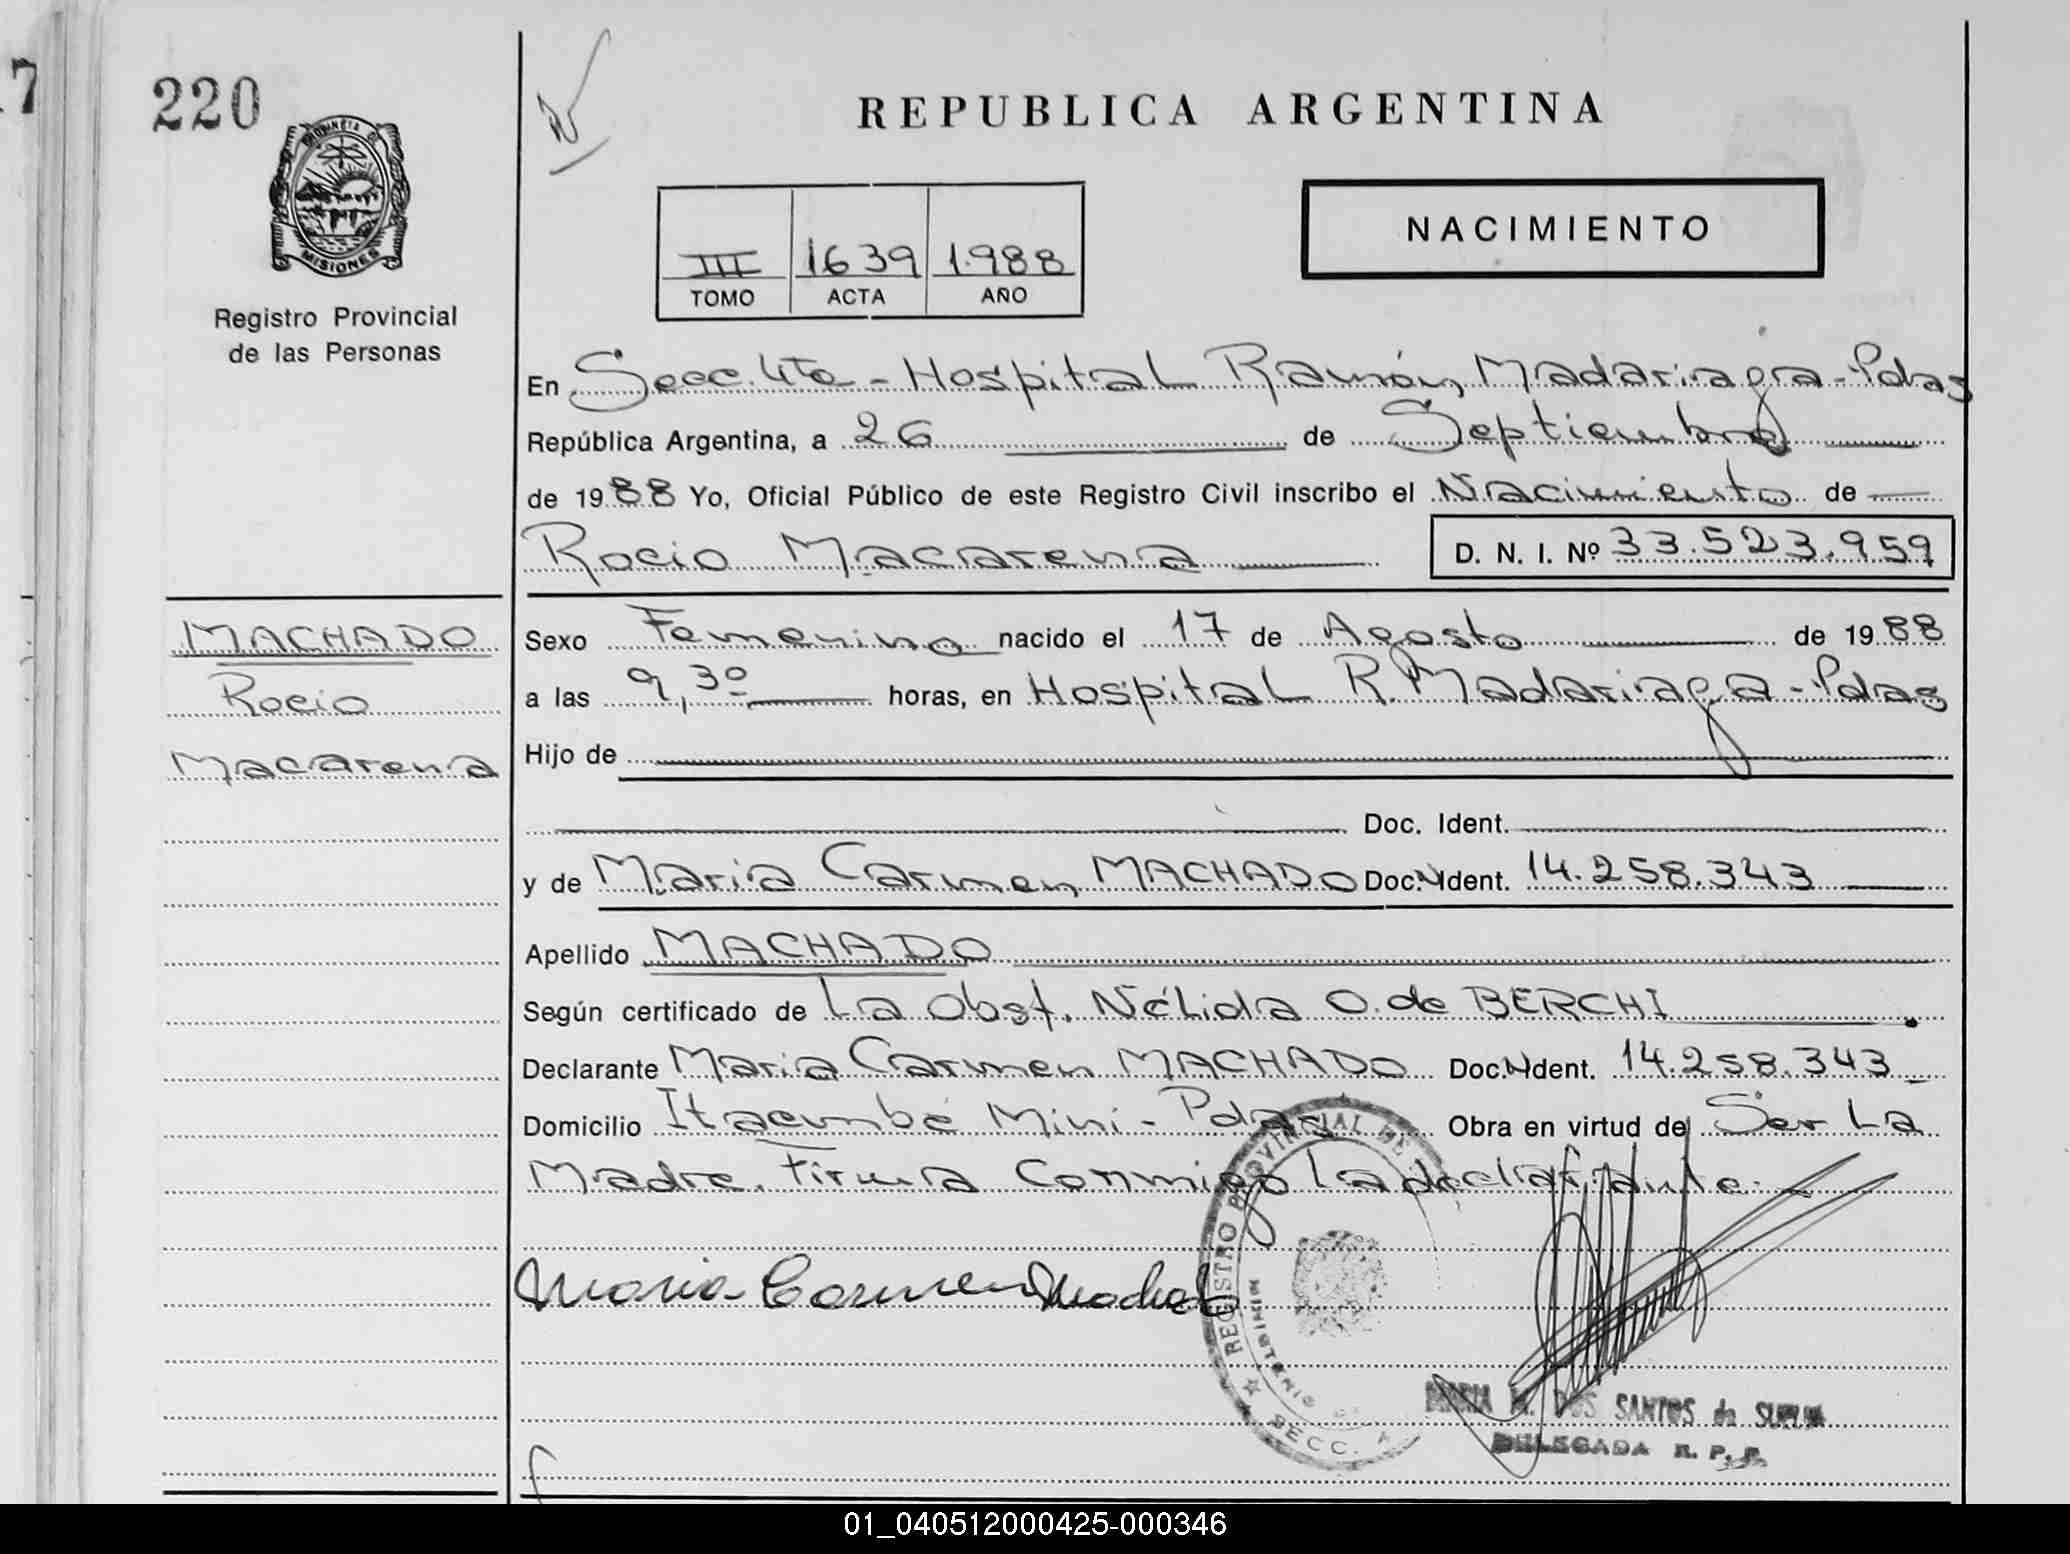 7
220
PROVINCIA DE
MISIONES
Registro Provincial
de las Personas
REPUBLICA ARGENTINA
NACIMIENTO
III 1639 1.988
TOMO ACTA AÑO
En Secc. 4ta - Hospital Ramón Madariaga - Pdas
República Argentina, a 26 de Septiembre
de 1988 Yo, Oficial Público de este Registro Civil inscribo el Nacimiento de
Rocio Macarena D. N. I. Nº 33.523.959
MACHADO
Rocio
Macarena
Sexo Femenino nacido el 17 de Agosto de 1988
a las 9,30 horas, en Hospital R. Madariaga - Pdas
Hijo de
Doc. Ident.
y de Maria Carmen MACHADO Doc. Ident. 14.258.343
Apellido MACHADO
Según certificado de La Obst. Nélida O. de BERCHI
Declarante Maria Carmen MACHADO Doc. Ident. 14.258.343
Domicilio Itaembé Mini - Pdas Obra en virtud de Ser La
Madre. Firma Conmigo La declarante.
Maria Carmen Machado
REGISTRO PROVINCIAL DE
SECC.
DOS SANTOS de
DELEGADA R. P. P.
01_040512000425-000346